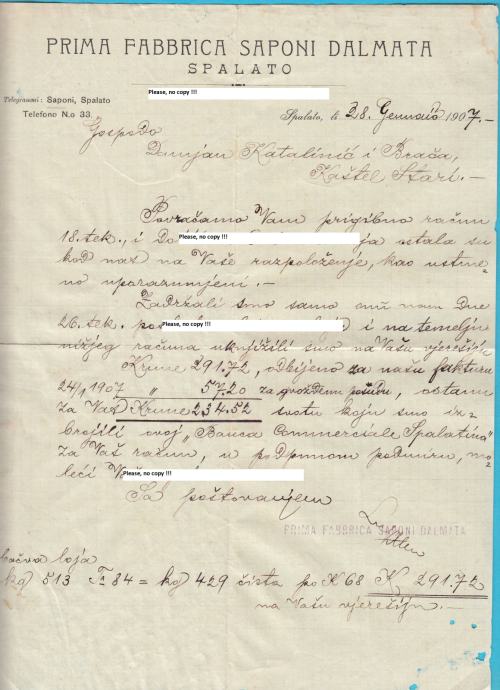 PRIMA FABBRICA SAPONI DALMATA
SPALATO
Please, no copy !!!
Telegrammi: Saponi, Spalato
Telefono N.o 33.
Spalato, li 28. Gennaio 1907.-
Gospodo
Damjan Katalinić i Braća,
Kaštel Stari.-
Povraćamo Vam prigibno račun
18. tek., i
Please, no copy !!!
ostala su
kod nas na Vaše razpoloženje, kao ustme-
no uporazumjeni.-
Zadržali smo samo onu nam dne
26. tek.
Please, no copy !!!
i na temelju
nižjeg računa uknjižili smo na Vašu vjeresiju
Krune 291.72, odbijeno za našu fakturu
24/1 1907 " 57.20 za gvozdenu posudu, ostaju
za Vas Krune 234.52 svotu koju smo iz-
brojili ovoj "Banca Commerciale Spalatina"
za Vaš račun, u podpunom podmiru, mo-
leći
Please, no copy !!!
Sa poštovanjem
PRIMA FABBRICA SAPONI DALMATA
bačva loja
kg 513 Ta 84 = kg 429 čista po K 68 K 291.72
na Vašu vjeresiju.-